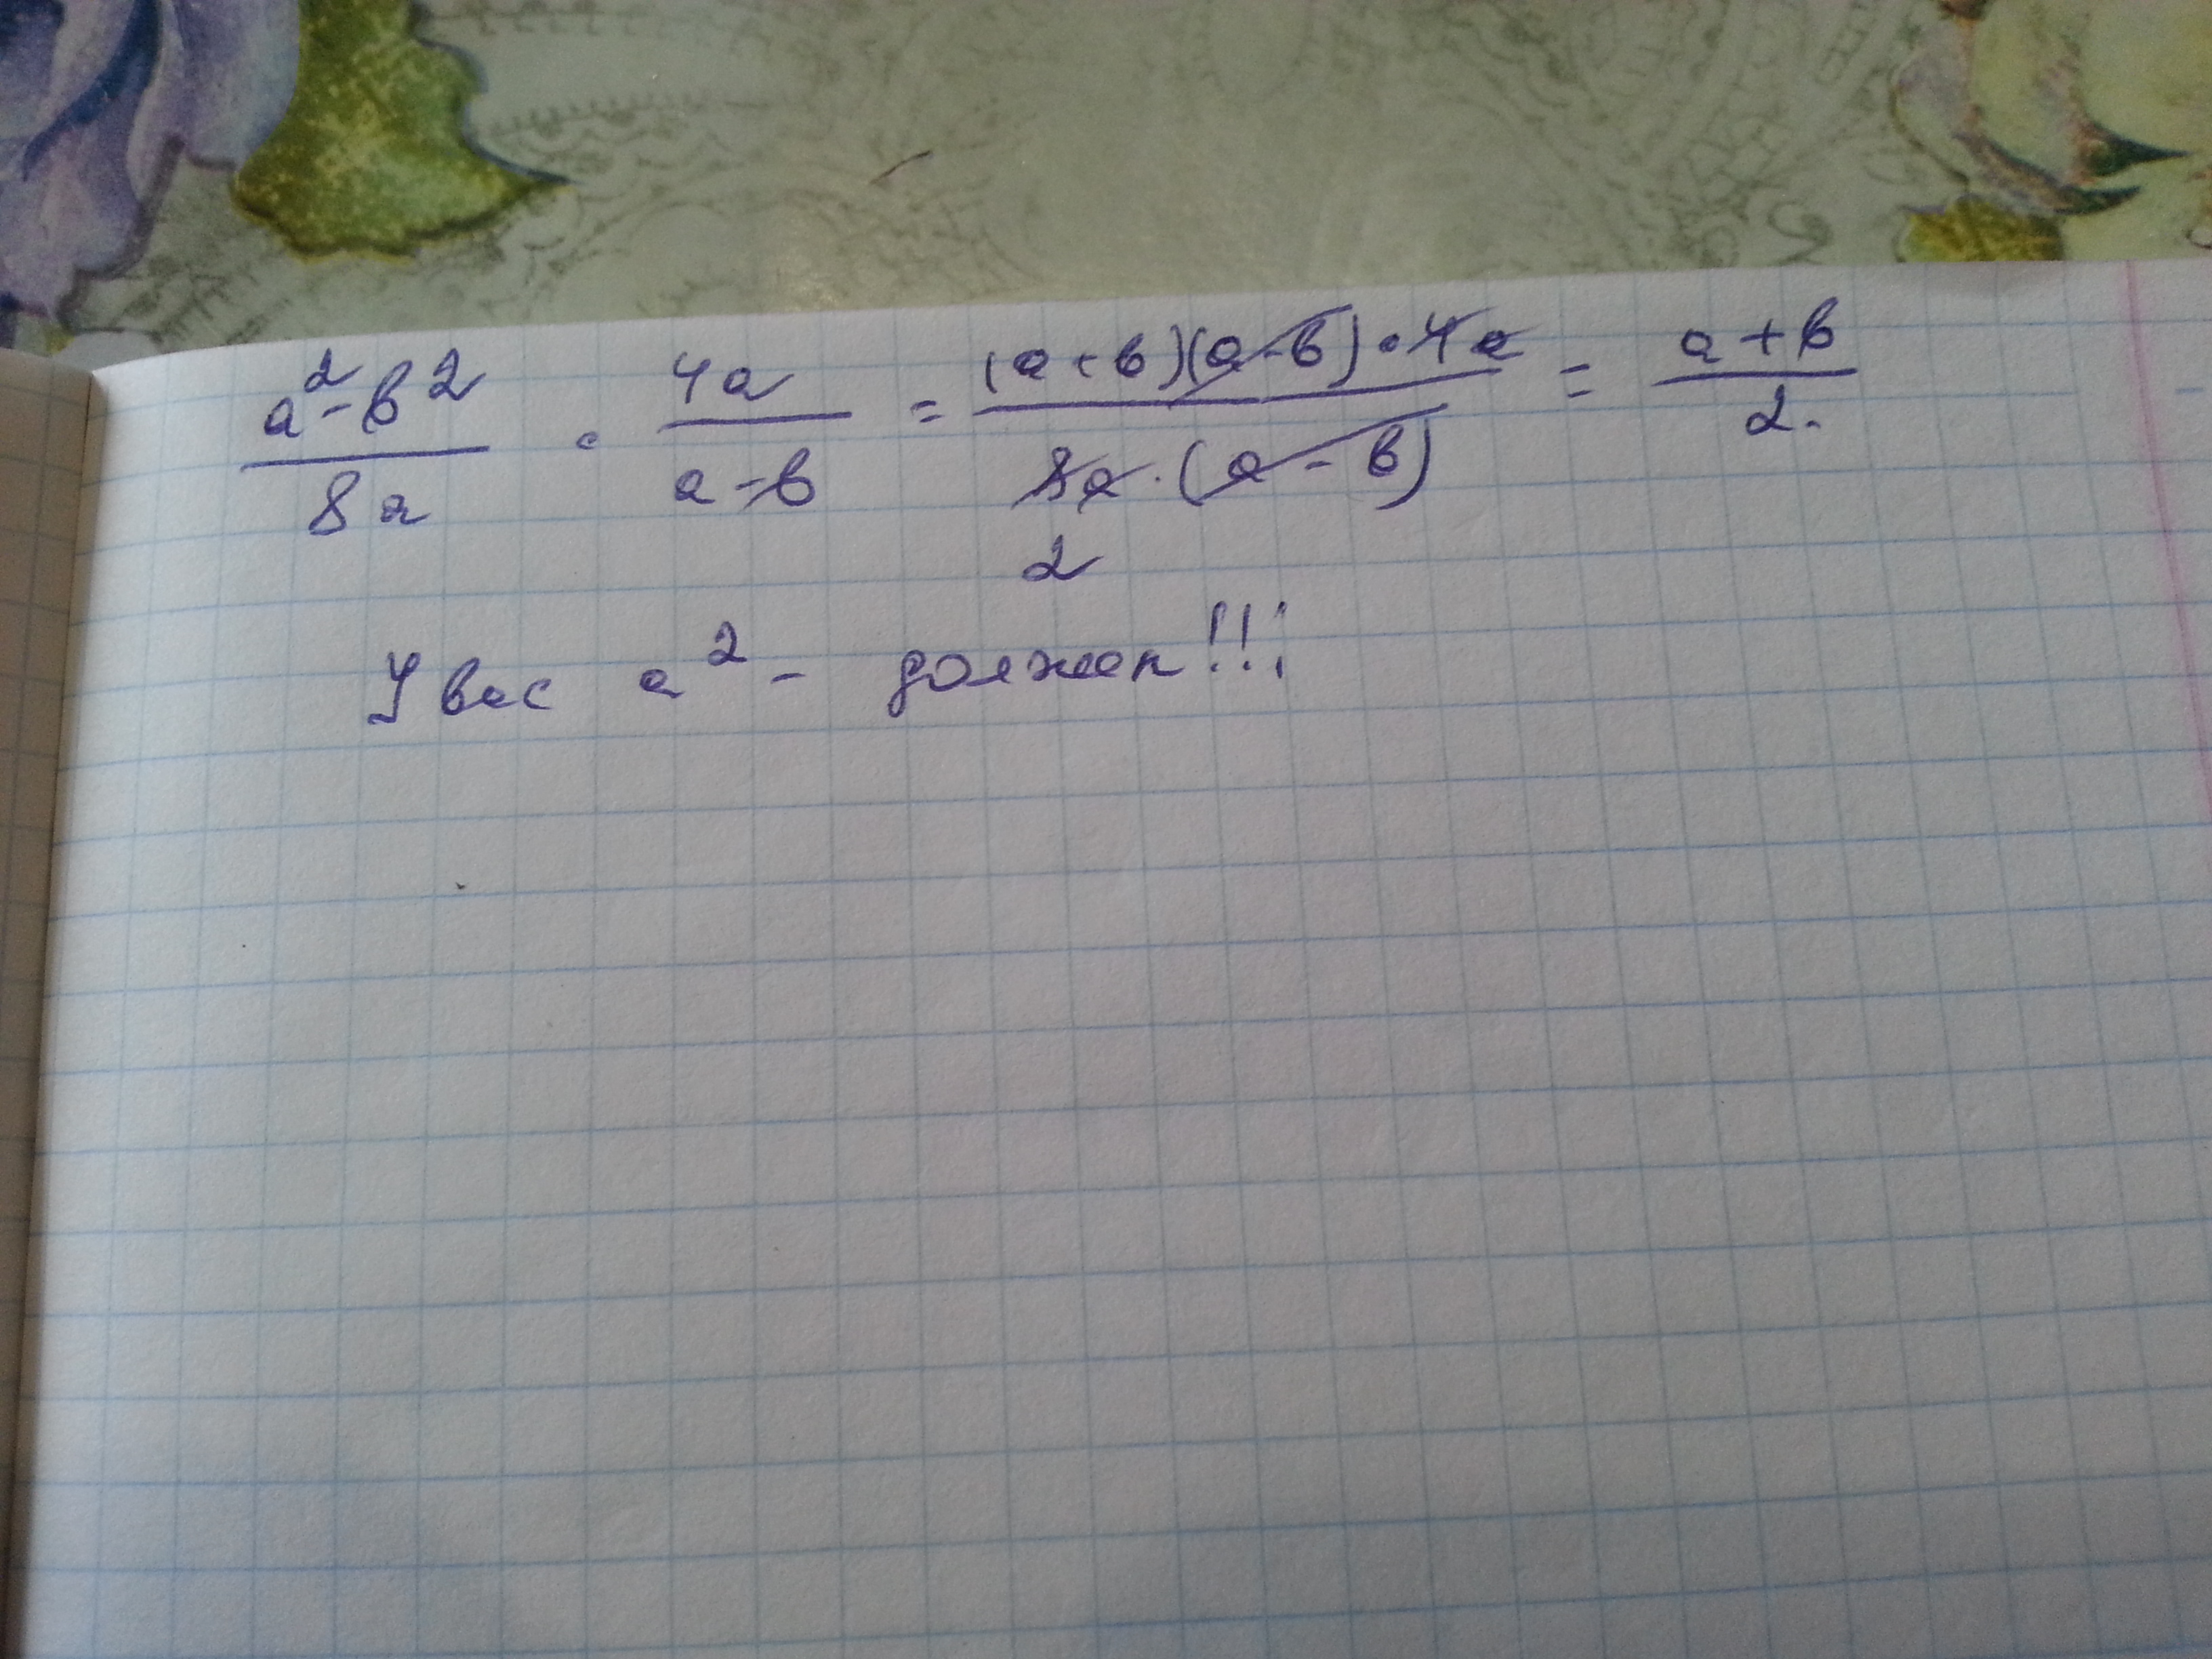 a² - b² / 8a · 4a / a - b = (a + b)(a - b) · 4a / 8a · (a - b) = a + b / 2.
2
У вас a² - должен!!!